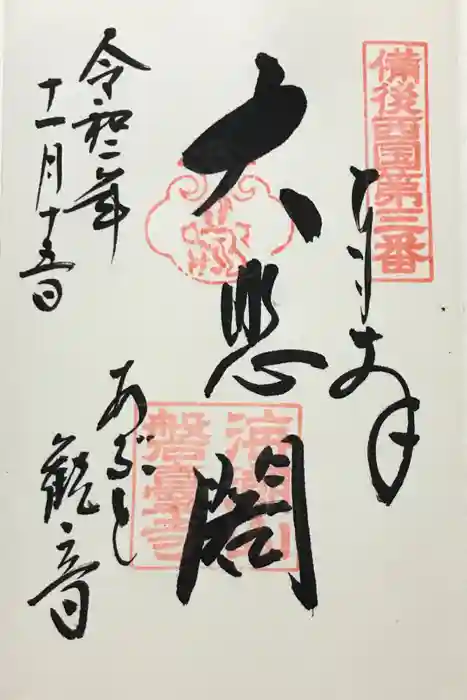 備後西国第三番
奉拝
大悲閣
海潮山
磐臺寺
あぶと
観音
令和二年
十一月十五日